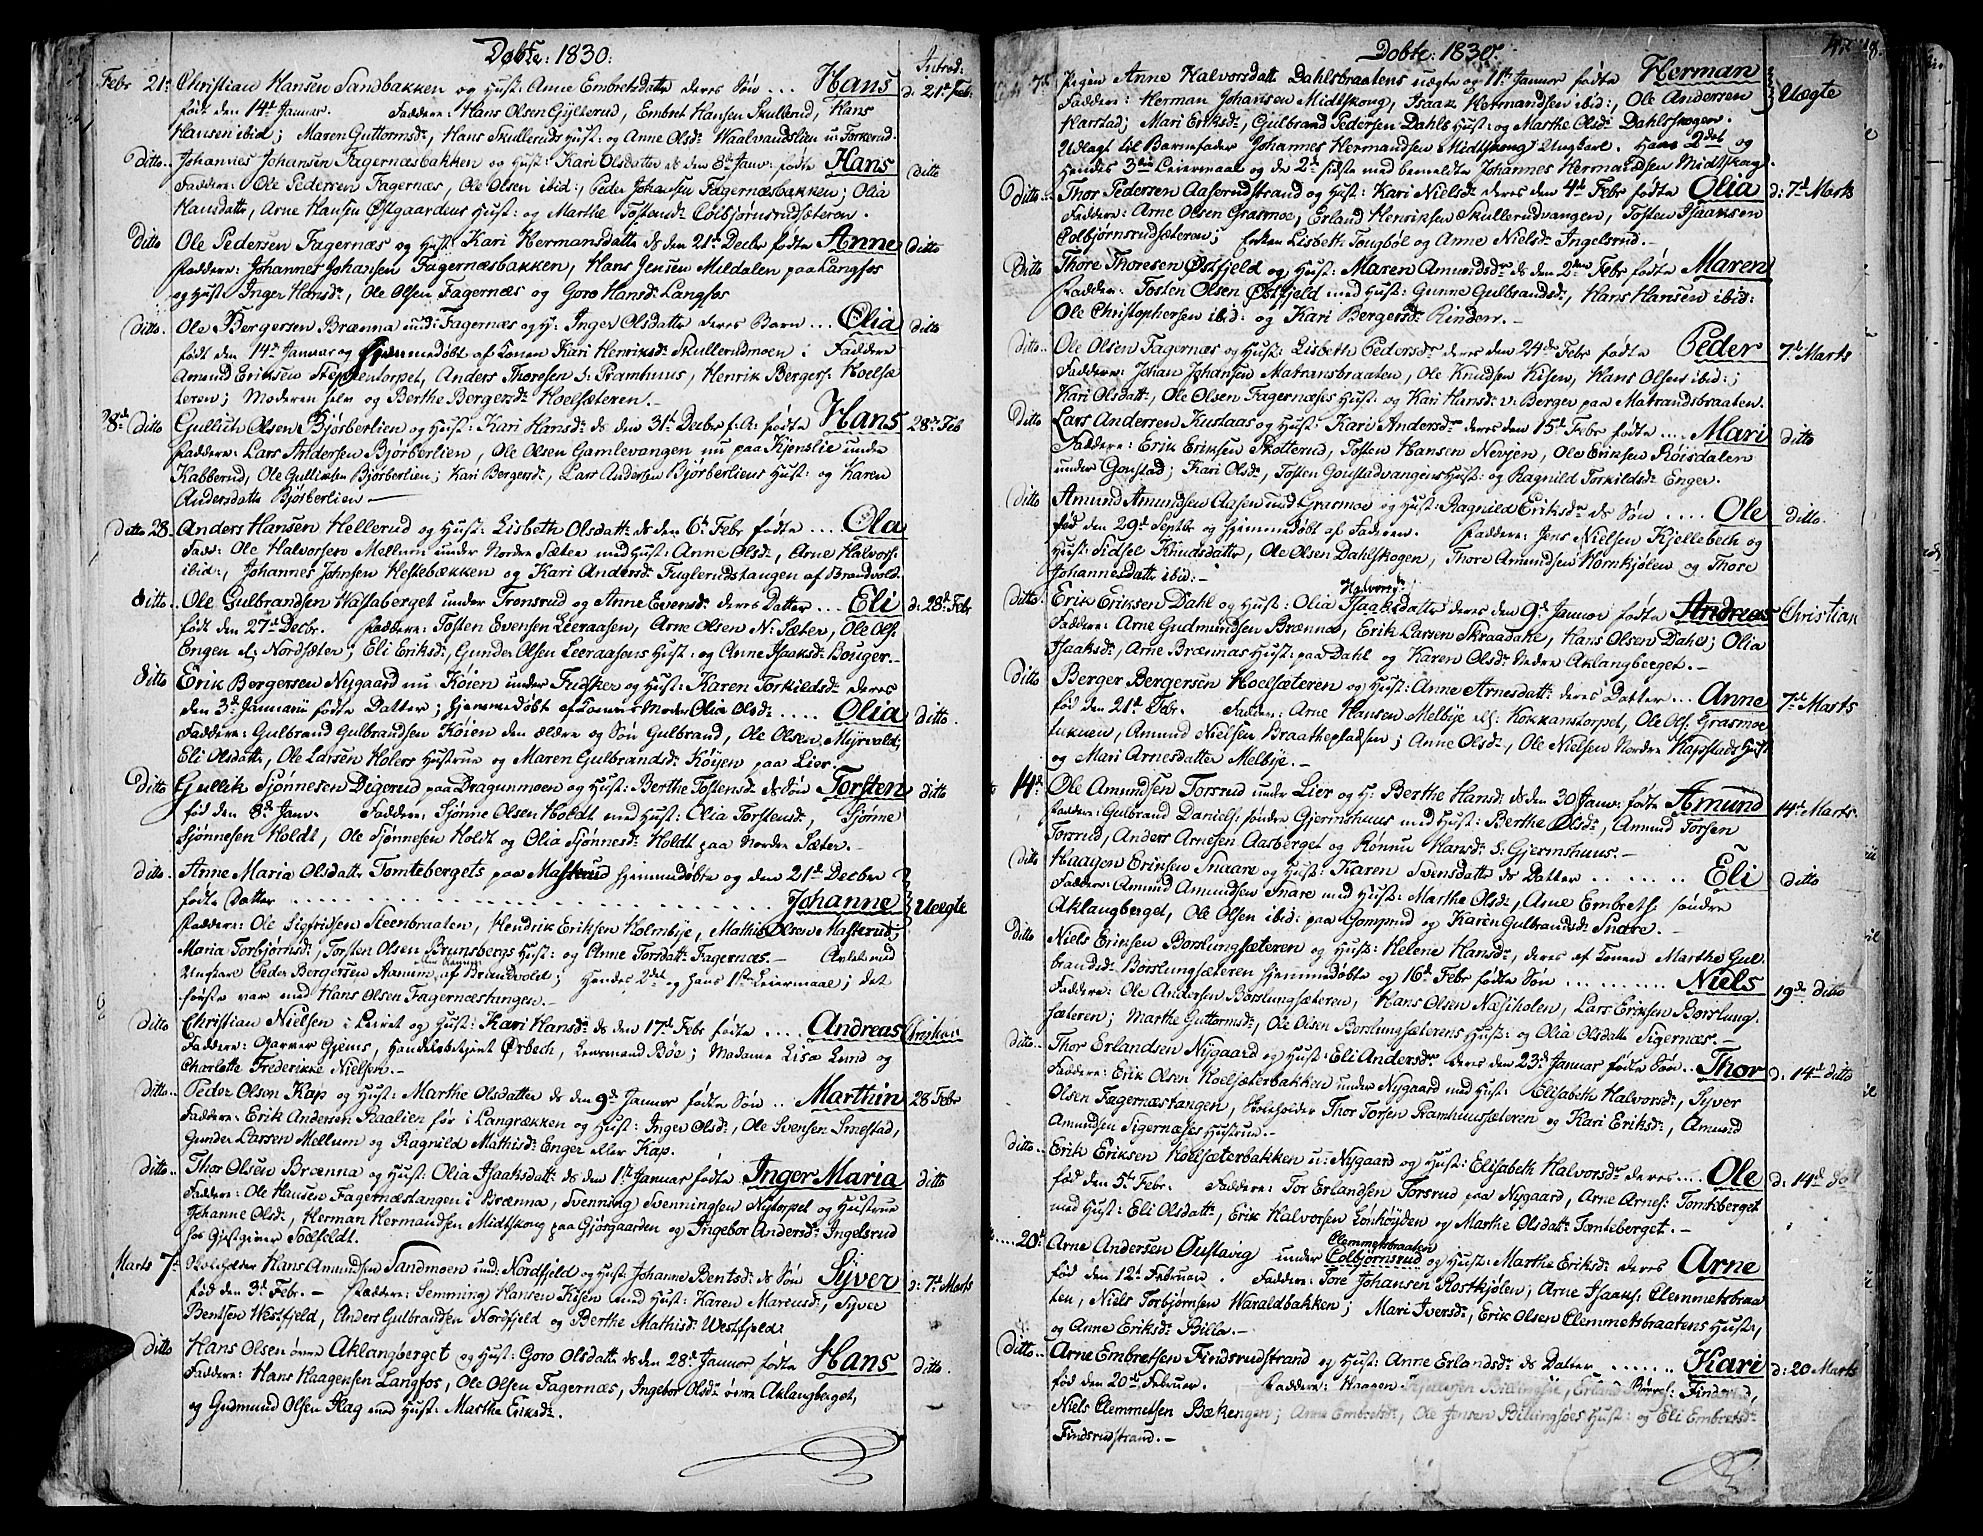 Døbte: 1830.
Introd:
Febr 21de Christian Hansen Sandbakken og Hust: Anne Embretsdatte deres Søn ... Hans d: 21de Feb:
født den 14de Januar. Faddere: Hans Olsen Gylterud, Embret Hansen Skullerud, Hans
Hansen ibid; Maren Guttormsdr, Hans Skulleruds Hust: og Anne Olsdr Waalvandslien u: Torkerud.
Ditto Johannes Johansen Fagernæsbakken og Hust: Kari Olsdatter ds den 8de Janv: fødte Hans ditto
Faddere: Ole Pedersen Fagernæs, Ole Olsen ibid:, Peder Johansen Fagernæsbakken; Olia
Hansdatte, Arne Hansen Østgaardens Hust: og Marthe Tostensdr Colbjørnsrudsæteren.
Ditto Ole Pedersen Fagernæs og Hust: Kari Hermansdatte ds den 21de Decbr fødte Anne ditto
Faddere: Johannes Johansen Fagernæsbakken, Hans Jensen Meldalen paa Langfos
og Hust: Inger Hansdr, Ole Olsen Fagernæs og Goro Hansdr Langfos
Ditto Ole Bergersen Brænna und: Fagernæs og H: Inger Olsdatte deres Barn ... Olia ditto
født den 14de Januar og hjemmedøbt af Konen Kari Henriksdr Skullerudmoen i Faddere
Amund Eriksen Steppentorpet, Anders Thoresen S: Framhuus, Henrik Bergers: Hoelsæ
teren; Moderen selv og Berthe Bergersdr Hoelsæteren.
28de ditto Gullich Olsen Bjørberlien og Hust: Kari Hansdr ds den 31te Decbr f: A: fødte Hans 28de Feb
Faddere: Lars Andersen Bjørberlien, Ole Olsen Gamlevangen nu paa Kisenslie under
Kabberud, Ole Gulliksen Bjørberlien; Kari Bergersdr, Lars Andersen Bjørberliens Hust: og Karen
Andersdatte Bjørberlien
Ditto 28. Anders Hansen Hellerud og Hust: Lisbeth Olsdatt: ds den 6te Febr fødte ... Ola
Fadd: Ole Halvorsen Mellum under Nordre Sæter med Hust: Anne Olsdr, Arne Halvors:
ibid:, Johannes Johnsen Hestebækken og Kari Andersdr Fuglerudshaugen af Brandvold.
Ditto.. Ole Gulbrandsen Kalfaberget under Tronsrud og Anne Evensdr deres Datter ... Eli d: 28de Febr
født den 27de Decbr. Faddere: Tosten Evensen Leeraasen, Arne Olsen N: Sæter, Ole Ols:
Engen ell: Nordsæter; Eli Eriksdr, Gunder Olsen Leeraasens Hust: og Anne Isaaksdr Bouger.
Ditto Erik Bergersen Nygaard nu Køien under Fuldsker og Hust: Karen Torkildsdr deres
den 3de Januarii fødte Datter; hjemmedøbt af Konens Moder Olia Olsdr .... Olia ditto.
Faddere: Gulbrand Gulbrandsen Køien den ældre og Søn Gulbrand, Ole Olsen Myrvold;
Eli Olsdatte, Ole Larsen Holers Hustrue og Maren Gulbrandsdr Køyen paa Lier.
Ditto Gullik Sjønnesen Digerud paa Dragunmoen og Hust: Berthe Tostensdr ds Søn Torsten ditto
fød den 8de Janv. Faddere: Sjønne Olsen Holdt med Hust: Olia Torstensdr, Sjønne
Sjønnesen Holdt, Ole Sjønnesen Holdt og Olia Sjønnesdr Holdt paa Nordre Sæter.
ditto. Anne Maria Olsdatte Tomtebergets paa Masterud hjemmedøbte og den 21de Decbr
fødte Datter ........ Johanne Uægte
Faddere: Ole Sigfridsen Steenbraaten, Hendrik Eriksen Holmbye, Mathis Olsen Masterud;
Maria Torbjørnsdr, Torsten Olsen Brunsbergs Hust: og Anne Torsdatte Fagernæs. Avlet med
Ungkarl Peder Bergersen Aamum af Brandvold; Hendes 2det og hans 1ste Leiermaal; det
første var med Hans Olsen Fagernæstangen.
Ditto Christian Nielsen i Leiret og Hust: Kari Hansdr ds den 17de Febr fødte .... Andreas Christian
Faddere: Garver Gjems, Handelsbetjent Ørbech, Lensmand Bøe; Madame Lisa Lund og
Charlotte Frederikke Nielsen.
Ditto.. Peder Olsen Kap og Hust: Marthe Olsdatter ds den 9de Januar fødte Søn .. Marthin 28 Febr
Faddere: Erik Andersen Paalien før i Langrækken og Hust: Inger Olsdr, Ole Svensen Smestad,
Gunder Larsen Mellum og Ragnild Mathisdr Enger eller Kap.
Ditto.. Thor Olsen Brænna og Hust: Olia Isaaksdatte ds den 1ste Januar fødte .. Inger Maria ditto
Faddere: Ole Hansen Fagernæstangen i Brænna, Svenning Svenningsen Nytorpet og Hustrue
Johanne Olsdr, Herman Hermandsen Midtskong paa Gjøsgaarden og Ingebor Andersdr Ingelsrud
hos Gjestgiver Solfeldt.
Marts 7de Skoleholder Hans Amundsen Sandmoen und: Nordfjeld og Hust: Johanne Bentsdr ds Søn Syver d: 7de Marts
fød den 3de Febr. Faddere: Semming Hansen Kisen med Hust: Karen Mariusdr, Syver
Bentsen Westfjeld, Anders Gulbrandsen Nordfjeld og Berthe Mathisdr Westfjeld.
Ditto Hans Olsen øvre Aklangberget og Hust: Goro Olsdatte ds den 28de Januar fødte Hans ditto.
Faddere: Hans Haagensen Langfos, Ole Olsen Fagernæs, Ingebor Olsdr øvre Aklangberget,
og Gudmund Olsen Flag med Hust: Marthe Eriksdr.
Døbte: 1830.
7de Pigen Anne Halvorsdatt Dahlsbraatens uægte og 11te Januar fødte Herman Uægte
Faddere: Herman Johansen Midtskong, Isaak Hermandsen ibid:, Ole Andersen
Harstad; Mari Eriksdr, Gulbrand Pedersen Dahls Hust: og Marthe Olsdr Dahlsskogen.
Udlagt til Barnefader Johannes Hermandsen Midtskong Ungkarl. Hans 2det og
Hendes 3die Leiermaal og de 2de sidste med bemeldte Johannes Hermandsen Midtskog.
Ditto .. Thor Pedersen Aaserudstrand og Hust: Kari Nielsdr deres den 4de Febr fødte Olia d: 7de Marts
Faddere: Arne Olsen Grasmoe, Erland Henriksen Skullerudvangen, Tosten Isaaksen
Colbjørnsrudsæteren; Enken Lisbeth Tougbøl og Anne Nielsdr Ingelsrud.
Ditto Thore Thoresen Østfjeld og Hust: Maren Amundsdr ds den 2den Febr fødte Maren
Faddere: Tosten Olsen Østfjeld med Hust: Gunne Gulbrandsdr, Hans Hansen ibid:
Ole Christophersen ibid: og Kari Bergersdr Rinden.
Ditto.. Ole Olsen Fagernæs og Hust: Lisbeth Pedersdr deres den 24de Febr fødte Peder 7de Marts
Faddere: Johan Johansen Matransbraaten, Ole Knudsen Kisen, Hans Olsen ibid:;
Kari Olsdatte, Ole Olsen Fagernæses Hust: og Kari Hansdr v: Berger paa Matrandsbraaten.
Ditto Lars Andersen Kustaas og Hust: Kari Andersdr deres den 15de Febr fødte .... Mari ditto
Faddere: Erik Eriksen Skotterud, Tosten Hansen Nevjen, Ole Eriksen Roisdalen
under Gonstad; Kari Olsdr, Tosten Gonstadvangens Hust: og Ragnild Torkildsdr Enger.
Ditto Amund Amundsen Aasen und: Grasmoe og Hust: Ragnild Eriksdr ds Søn .... Ole ditto.
fød den 29de Septbr og hjemmedøbt af Faderen. Faddere: Jens Nielsen Kjellebech og
Hust: Sidsel Knudsdatte, Ole Olsen Dahlskogen, Thore Amundsen Hornkjølen og Thore
Johannesdatte ibid:
Halvorsdr
Ditto. Erik Eriksen Dahl og Hust: Olia Isaaksdatte deres den 9de Januar fødte Andreas Christian
Faddere: Arne Gudmundsen Brænna, Erik Larsen Skraadake, Hans Olsen Dahl; Olia
Isaaksdr, Arne Brænnas Hust: paa Dahl og Karen Olsdr Nedre Aklangberget.
Ditto Berger Bergersen Hoelsæteren og Hust: Anne Arnesdatt: deres Datter ... Anne 7de Marts
fød den 21de Febr. Faddere: Arne Hansen Melbye ell: Kokkanstorpet, Ole Ols. Grasmoe
tukken, Amund Nielsen Braathepladsen; Anne Olsdr, Ole Nielsen Nordre Kapstads Hust:
og Mari Arnesdatter Melbye.
14de Ole Amundsen Torsrud under Lier og H: Berthe Hansdr ds den 30 Janv. fødte Amund 14de Marts.
Faddere: Gulbrand Daniels: søndre Gjermshuus med Hust: Berthe Olsdr, Amund Torsen
Torsrud, Anders Arnesen Aasberget og Rønnu Hansdr S: Gjermshuus.
Ditto Haagen Eriksen Snaare og Hust: Karen Svensdatte ds Datter ........ Eli ditto
Faddere: Amund Amundsen Snare med Hust: Marthe Olsdr, Arne Embrets: søndre
Aklangberget, Ole Olsen ibid: paa Gompud og Karen Gulbrandsdr Snare.
Ditto Niels Eriksen Borslungsæteren og Hust: Helene Hansdr, deres af Konen Marthe Gul
brandsdr Borslungsæteren hjemmedøbte og 16de Febr fødte Søn ......... Niels 19de ditto
Faddere: Ole Andersen Borslungsæteren, Hans Olsen Næsiholen, Lars Eriksen Borslung
sæteren; Marthe Guttormsdr, Ole Olsen Borslungsæterens Hust: og Olia Olsdatte Sigernæs.
Ditto.. Thor Erlandsen Nygaard og Hust: Eli Andersdr deres den 23de Januar fødte Søn .. Thor d: 14de ditto
Faddere: Erik Olsen Hoelsæterbakken under Nygaard med Hust: Elisabeth Halvorsdr, Syver
Olsen Fagernæstangen, Skoleholder Thor Torsen Framhuussæteren og Kari Eriksdr, Amund
Amundsen Sigernæses Hustrue.
Ditto.. Erik Eriksen Hoelsæterbakken u: Nygaard og Hust: Elisabeth Halvorsdr deres ... Ole d: 14de do
fød den 5te Febr. Faddere: Tor Erlandsen Torsrud paa Nygaard, Arne Arnes: Tomteberget
med Hust: Eli Olsdatte, Erik Halvorsen Lønhøyden og Marthe Olsdatt: Tomteberget.
Clemmetsbraaten
20de Arne Andersen Oustavig under Colbjørnsrud og Hust: Marthe Eriksdr deres Arne
fød den 12te Februar. Faddere: Tore Johansen Rostkjølen, Arne Isaaks: Clemmetsbraa
ten, Niels Torbjørnsen Waraldbakken; Mari Iversdr, Erik Olsen Clemmetsbraatens Hust:,
og Anne Eriksdr Billa.
Ditto.. Arne Embretsen Findsrudstrand og Hust: Anne Erlandsdr ds Datter ....... Kari d: 20 Marts
fød den 20de Februar. Faddere: Haagen Billingsøe, Erland Findsrud,
Niels Clemmetsen Bækengen; Anne Embretsdr, Ole Jensen Billingsøes Hust: og Eli Embretsdr
Findsrudstrand.